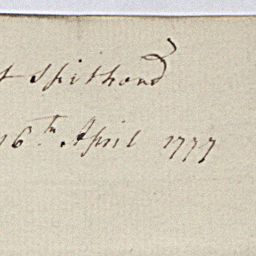 t Spithead
16th April 1777